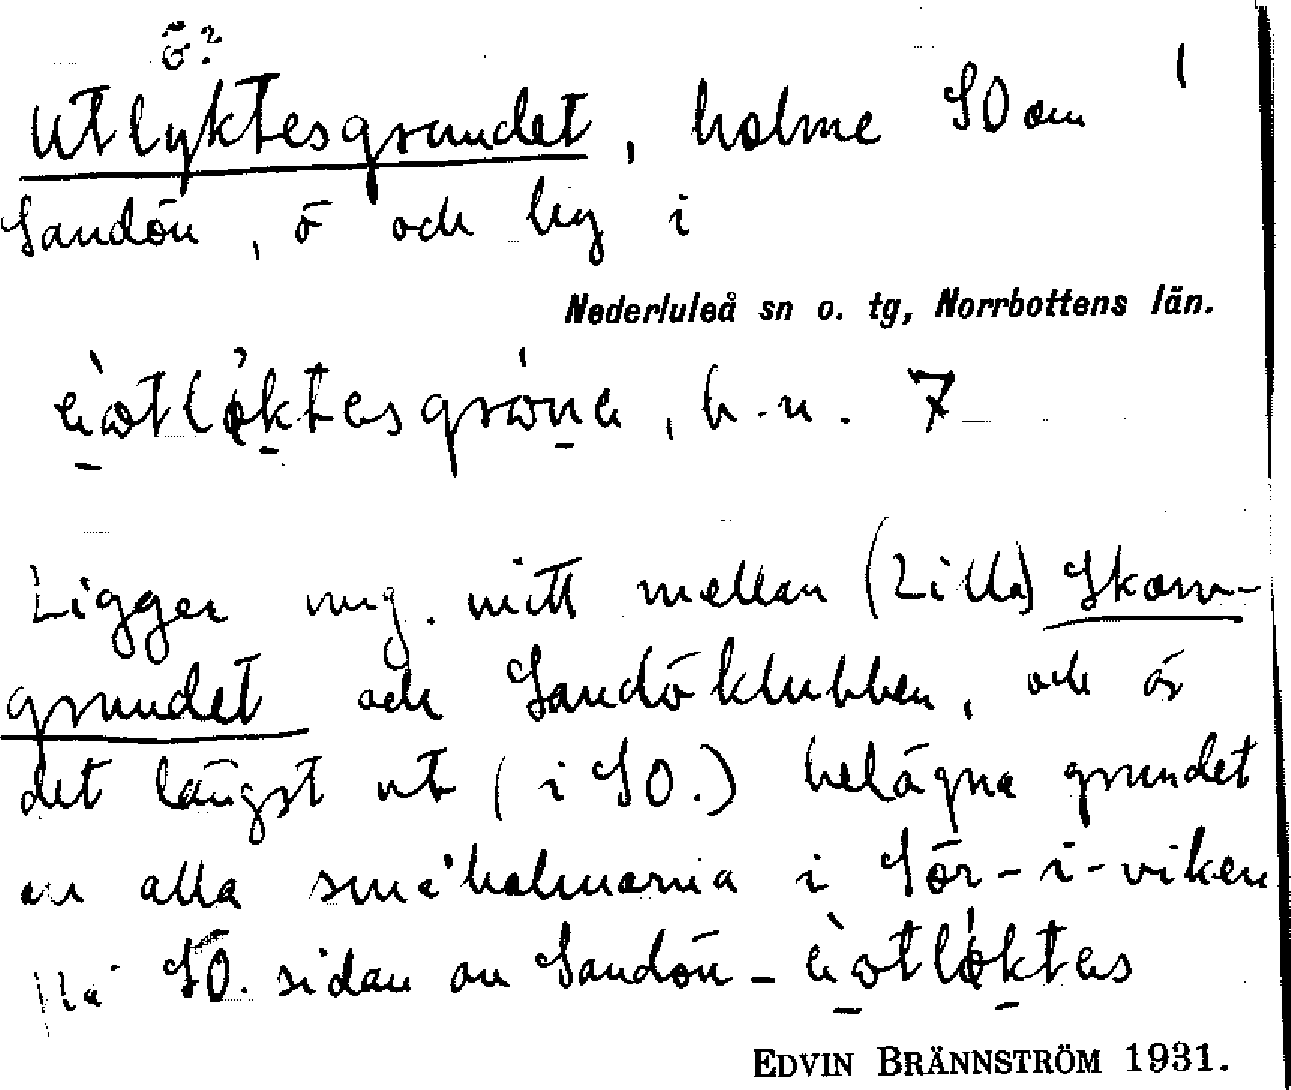 ö? 1
Utlyktesgrundet, holme SO om
Sandön, ö och lhg i
Nederluleå sn o. tg, Norrbottens län.
h.n. 7
Ligger ung. mitt mellan (Lilla) Skarv-
grundet och Sandöklubben, och är
det längst ut (i SO.) belägna grundet
av alla småholmarna i Sör-i-viken
på SO. sidan av Sandön –
EDVIN BRÄNNSTRÖM 1931.